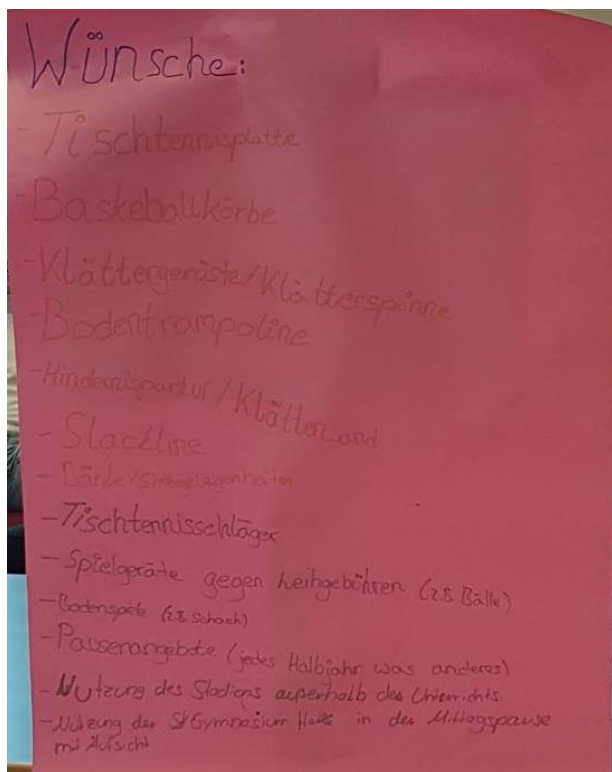 Wünsche:
- Tischtennisplatte
- Baskeballkörbe
- Klättergerüste/Klätterspinne
- Bodentrampoline
- Hindernisparkur/Klätterwand
- Slackline
- Bänke/Sitzgelegenheiten
- Tischtennisschläger
- Spielgeräte gegen Leihgebühren (z.B. Bälle)
- Bodenspiele (z.B. Schach)
- Pausenangebote (jedes Halbjahr was anderes)
- Nutzung des Stadions außerhalb des Unterrichts
- Nutzung der Gymnasium Halle in der Mittagspause
mit Aufsicht